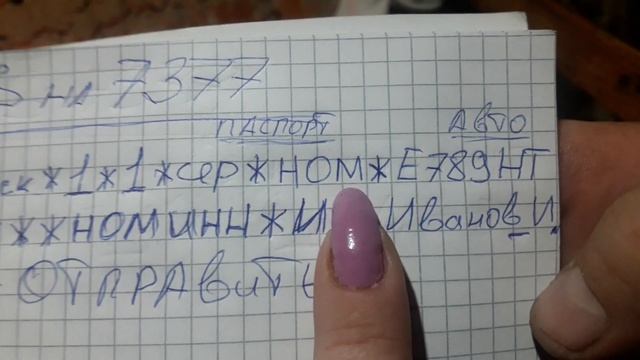 на 7377
ПАСПОРТ АВТО
ск*1*1*сер*НОМ*Е789НТ
**НОМИНН*И Иванов И.
ОТПРАВИТЬ